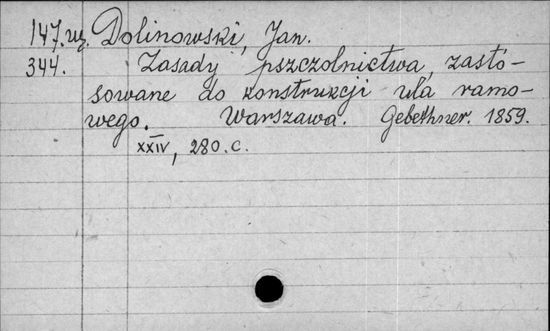 147.uz. Dolinowski, Jan.
344. Zasady pszczolnictwa, zasto-
sowane do konstrukcji ula ramo-
wego. Warszawa. Gebethner. 1859.
XXIV, 280.c.